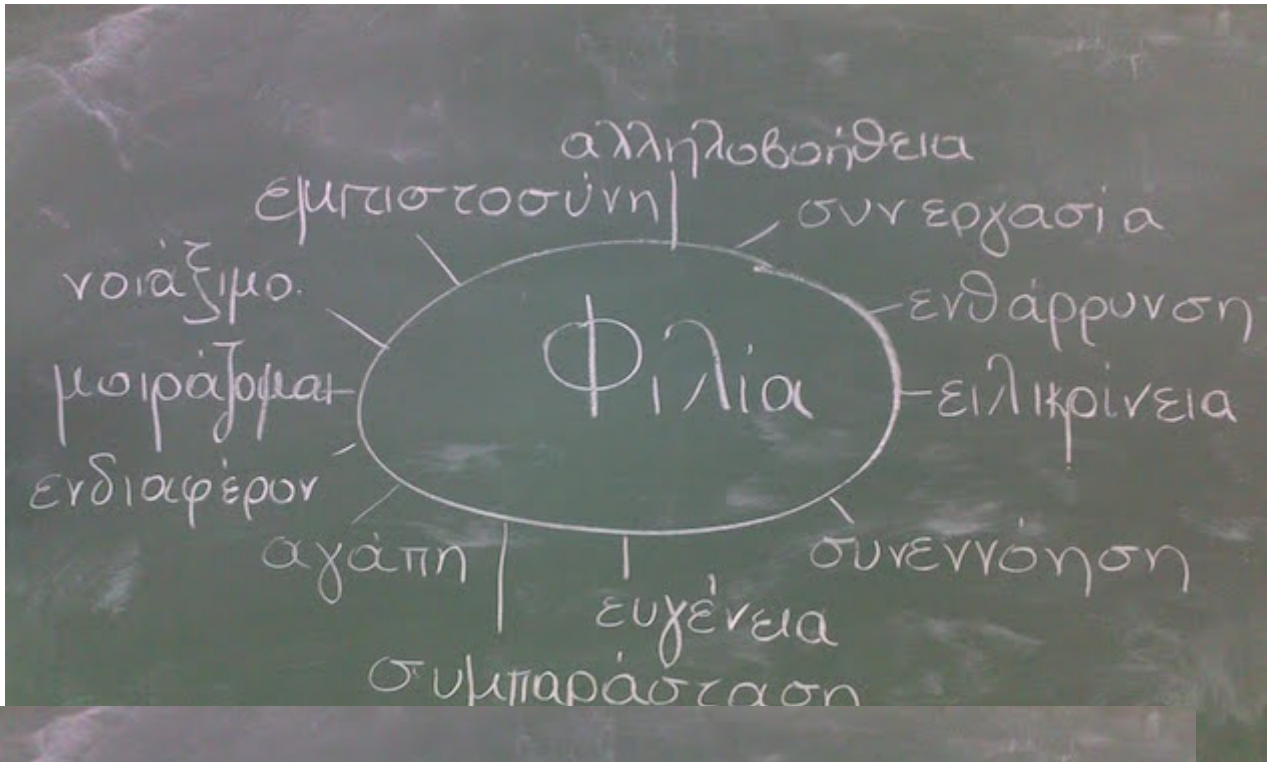 αλληλοβοήθεια
εμπιστοσύνη
συνεργασία
νοιάξιμο.
ενθάρρυνση
Φιλία
μοιράζομαι
ειλικρίνεια
ενδιαφέρον
αγάπη
συνεννόηση
ευγένεια
συμπαράσταση